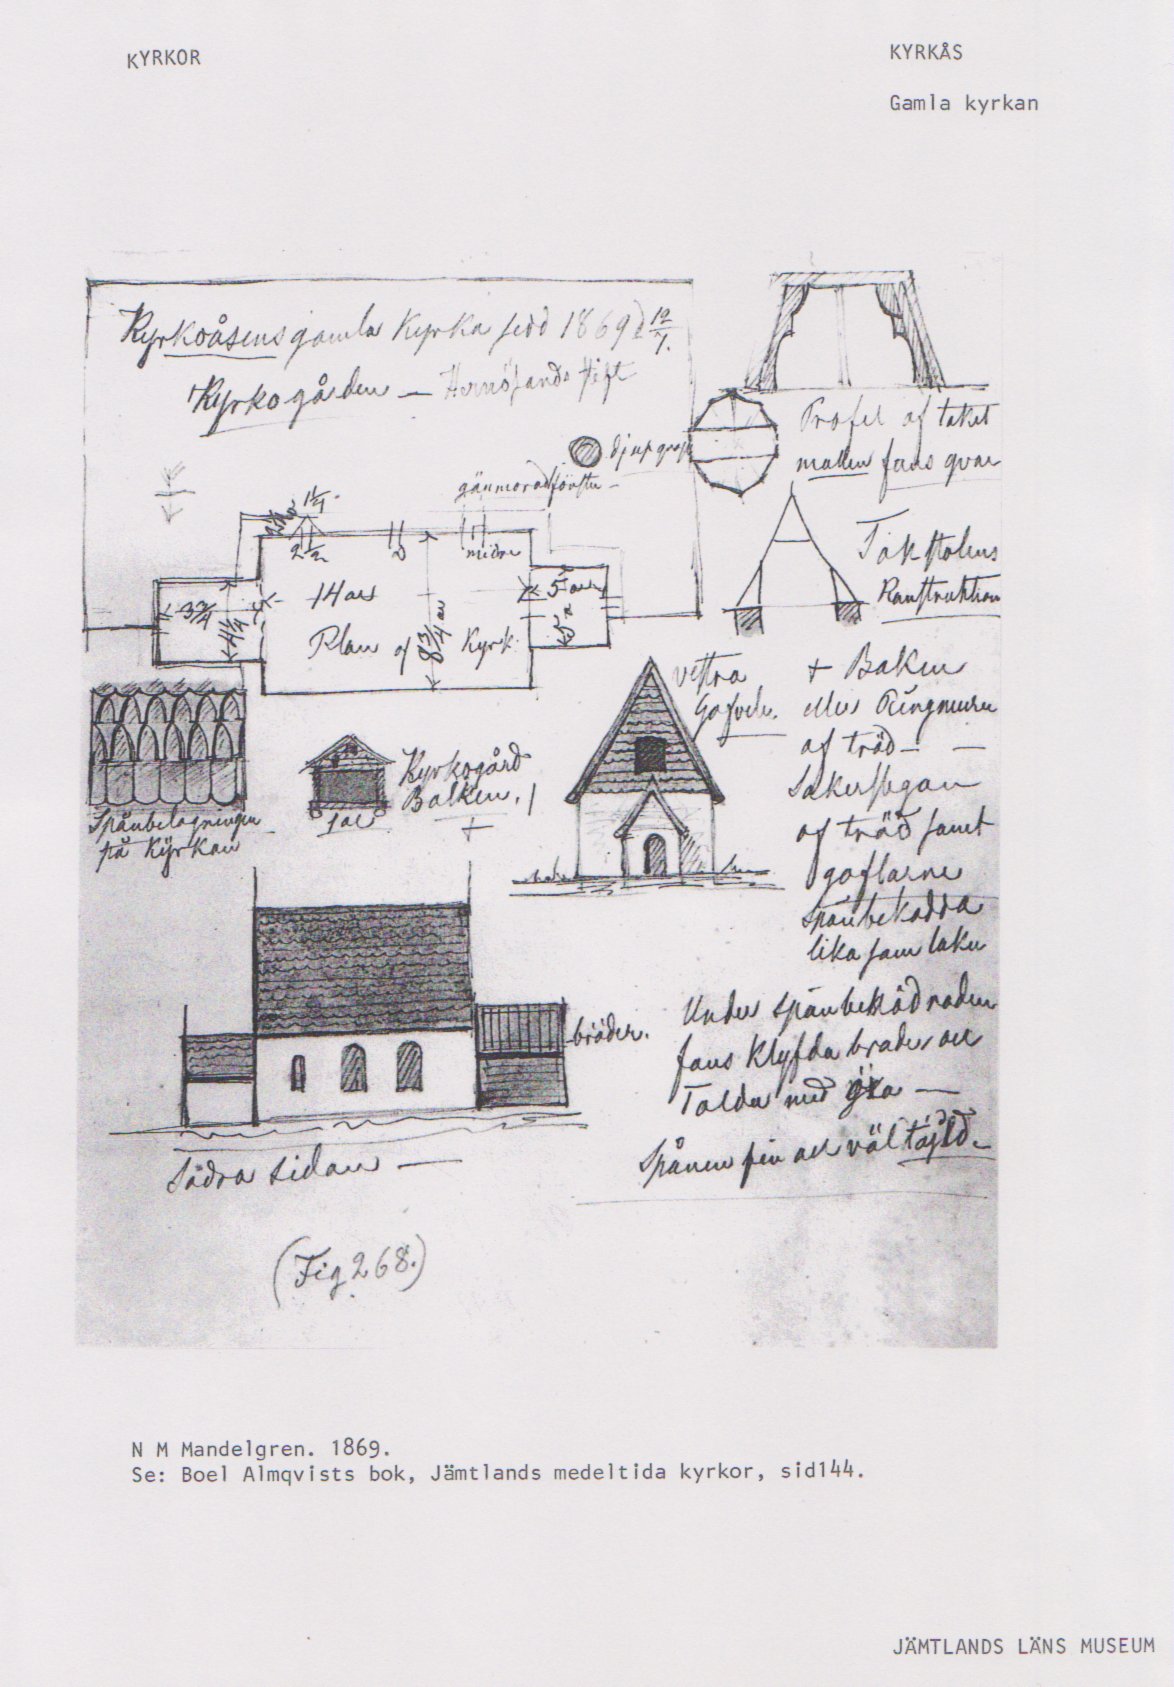 KYRKOR
KYRKÅS
Gamla kyrkan
Kyrkoåsens gamla Kyrka sedd 1869 d 19/7.
Kyrkogården — Hernösands stift
djup graf
gänmorad fönster –
1 1/4
2 1/2
nedre
14 alr
3 3/4
4 1/4
8 3/4 al
5 alr
5 a
Plan af Kyrk
Profil af taket
mallen fans qvar
Takstolens
Konstruktion
vestra
Gafveln.
+ Balken
eller Ringmuren
af träd — —
Sakerstigan
af träd samt
gaflarne
spånbekädda
lika som taken
Kyrkogård
Balken. /
+
1 al
Spånbelagningen
på Kyrkan
bräder.
Under spånbeklädnaden
fans Klyfda bräder och
Talda med yxa —
Spånen fin och väl täjld. –
Södra sidan —
(Fig 268.)
N M Mandelgren. 1869.
Se: Boel Almqvists bok, Jämtlands medeltida kyrkor, sid144.
JÄMTLANDS LÄNS MUSEUM